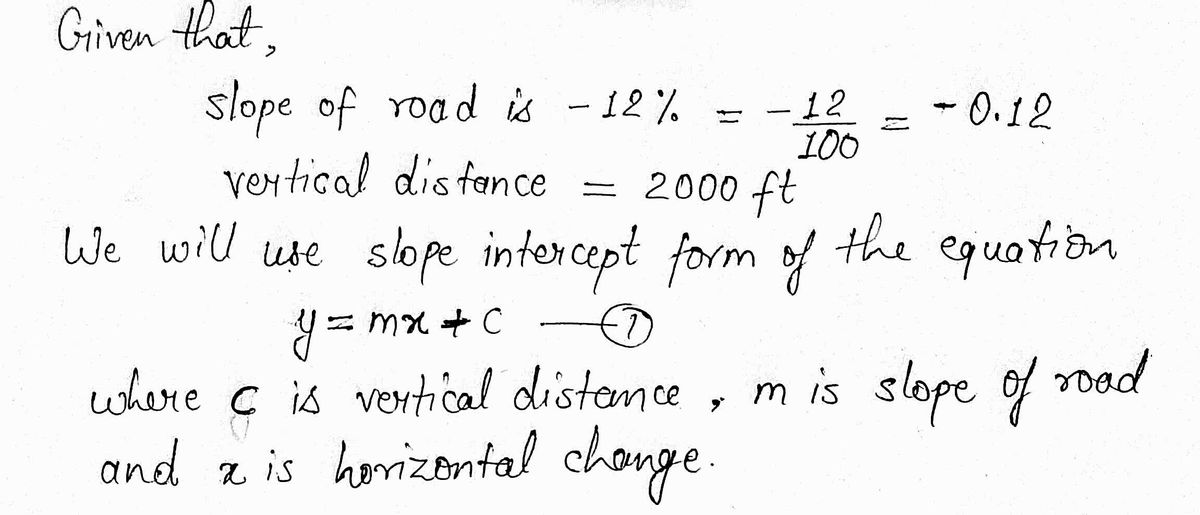 Given that,
slope of road is - 12% = -12/100 = -0.12
vertical distance = 2000 ft
We will use slope intercept form of the equation
y = mx + c —①
where c is vertical distance, m is slope of road
and x is horizontal change.